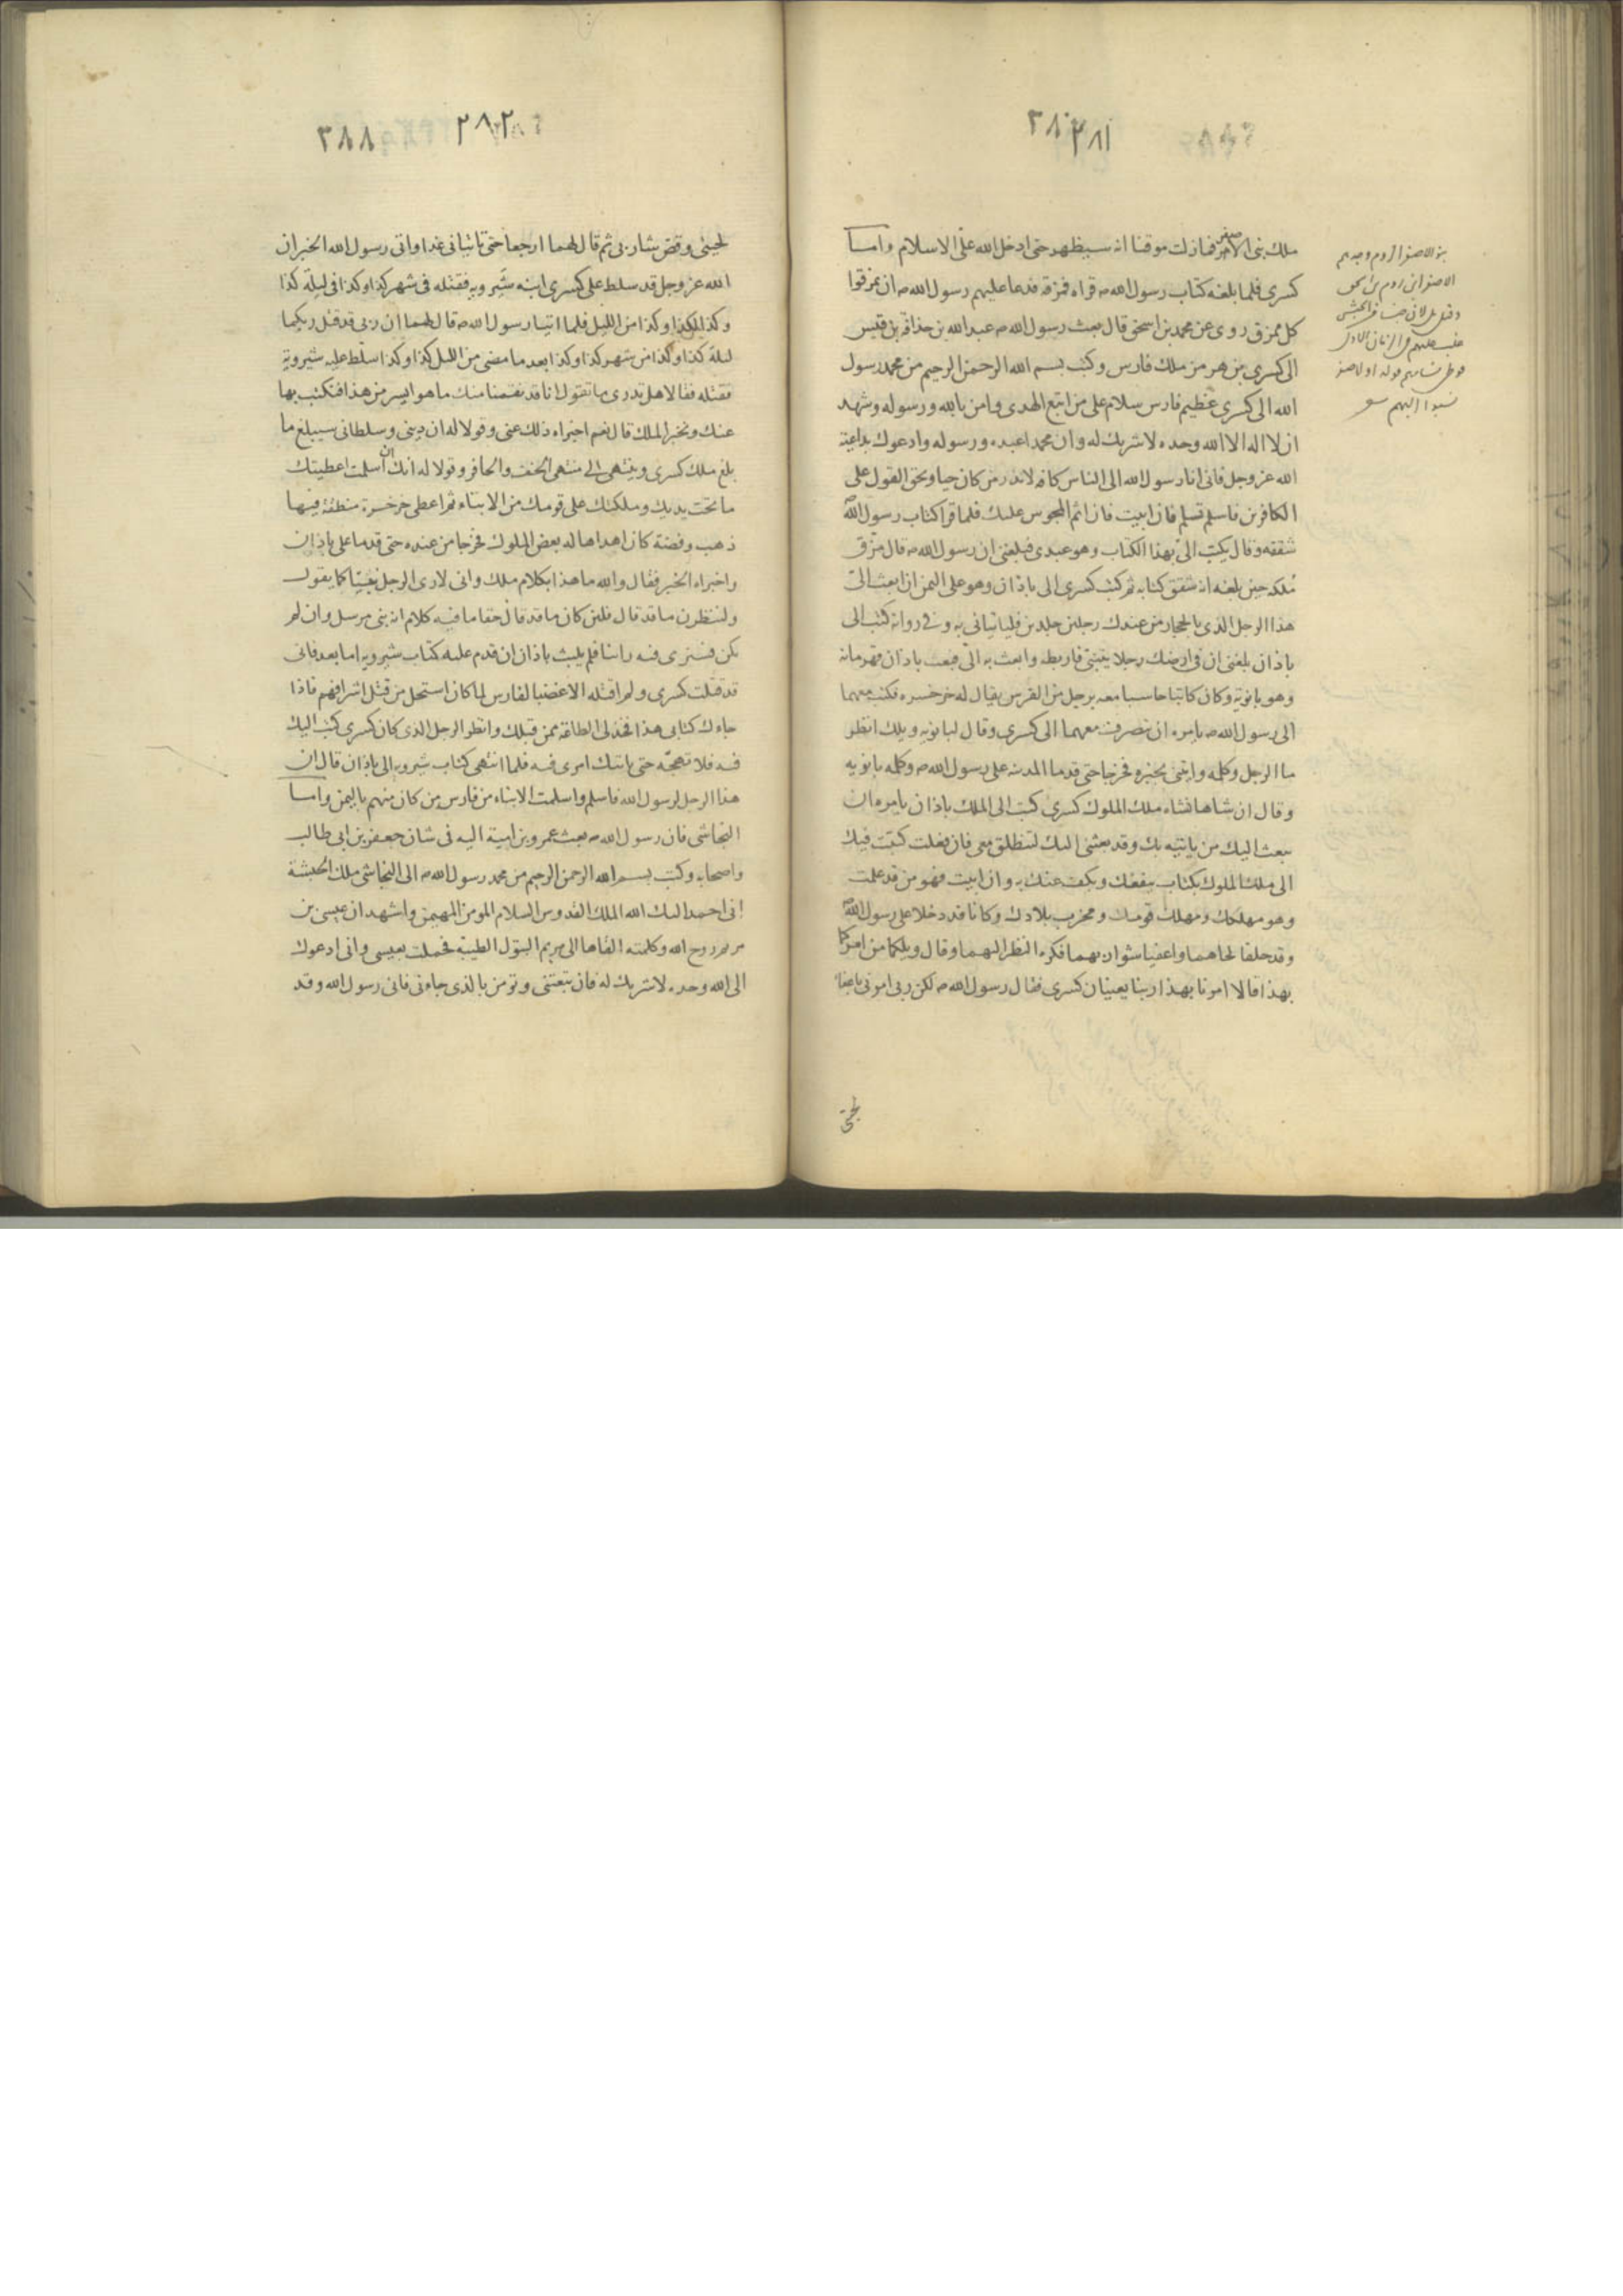 ٣٨٠
٢٨١
ملك بنى الاصفر فمازلت موقنا انه سيظهر حتى ادخل الله علىّ الاسلام واما
كسرى فلما بلغه كتاب رسول الله ص قراه فمزقه فدعا عليهم رسول الله ص ان يمزقوا
كل ممزق روى عن محمد بن اسحق قال بعث رسول الله ص عبد الله بن حذافة بن قيس
الى كسرى بن هرمز ملك فارس وكتب بسم الله الرحمن الرحيم من محمد رسول
الله الى كسرى عظيم فارس سلام على من اتبع الهدى وامن بالله ورسوله وشهد
ان لا اله الا الله وحده لا شريك له وان محمدا عبده ورسوله وادعوك بداعية
الله عز وجل فانى انا رسول الله الى الناس كافة لانذر من كان حيا ويحق القول على
الكافرين فاسلم تسلم فان ابيت فان اثم المجوس عليك فلما قرا كتاب رسول الله ص
شققه وقال يكتب الىّ بهذا الكتاب وهو عبدى فبلغنى ان رسول الله ص قال مزق
ملكه حين بلغه انه شقق كتابه ثم كتب كسرى الى باذان وهو على اليمن ان ابعث الىّ
هذا الرجل الذى بالحجاز من عندك رجلين جلدين فلياتيانى به وفى رواية كتب الى
باذان بلغنى ان فى ارضك رجلا يتنبى فاربطه وابعث به الىّ فبعث باذان قهرمانه
وهو بانويه وكان كاتبا حاسبا معه برجل من الفرس يقال له خرخسره فكتب معهما
الى رسول الله ص يامره ان ينصرف معهما الى كسرى وقال لبانويه ويلك انظر
ما الرجل وكلمه واتنى بخبره فخرجا حتى قدما المدينة على رسول الله ص وكلمه بانويه
وقال ان شاهانشاه ملك الملوك كسرى كتب الى الملك باذان يامره ان
يبعث اليك من ياتيه بك وقد بعثنى اليك لتنطلق معى فان فعلت كتبت فيك
الى ملك الملوك بكتاب ينفعك ويكف عنك به وان ابيت فهو من قد علمت
وهو مهلكك ومهلك قومك ومخرب بلادك وكانا قد دخلا على رسول الله ص
وقد حلقا لحاهما واعفيا شواربهما فكره النظر اليهما وقال ويلكما من امركما
بهذا قالا امرنا بهذا ربنا يعنيان كسرى فقال رسول الله ص لكن ربى امرنى باعفاء
لحيتى
بنو الاصفر الروم وجدهم
الاصفر ابن روم بن
وقيل لان جيشا من الحبش
غلب عليهم فى الزمان الاول
فوطى نساءهم فولد اولاد صفر
نسبوا اليهم
٣٨٨
٢٨٢
لحيتى وقص شاربى ثم قال لهما ارجعا حتى تاتيانى غدا واتى رسول الله الخبر ان
الله عز وجل قد سلط على كسرى ابنه شيرويه فقتله فى شهر كذا وكذا فى ليلة كذا
وكذا لكذا وكذا من الليل فلما اتيا رسول الله ص قال لهما ان ربى قد قتل ربكما
ليلة كذا وكذا من شهر كذا وكذا بعد ما مضى من الليل كذا وكذا سلط عليه شيرويه
فقتله فقالا هل تدرى ما تقول انا قد نقمنا منك ما هو ايسر من هذا فنكتب بها
عنك ونخبر الملك قال نعم اخبراه ذلك عنى وقولا له ان دينى وسلطانى سيبلغ ما
بلغ ملك كسرى وينتهى الى منتهى الخف والحافر وقولا له انك ان اسلمت اعطيتك
ما تحت يديك وملكتك على قومك من الابناء ثم اعطى خرخسرة منطقة فيها
ذهب وفضة كان اهداها له بعض الملوك فخرجا من عنده حتى قدما على باذان
واخبراه الخبر فقال والله ما هذا بكلام ملك وانى لارى الرجل نبيّا كما يقول
ولننظرن ما قد قال فلئن كان ما قد قال حقا ما فيه كلام انه نبى مرسل وان لم
يكن فسنرى فيه راينا فلم يلبث باذان ان قدم عليه كتاب شيرويه اما بعد فانى
قد قتلت كسرى ولم اقتله الا غضبا لفارس لما كان استحل من قتل اشرافهم فاذا
جاءك كتابى هذا فخذ لى الطاعة ممن قبلك وانظر الرجل الذى كان كسرى كتب اليك
فيه فلا تهجه حتى ياتيك امرى فيه فلما انتهى كتاب شيرويه الى باذان قال ان
هذا الرجل لرسول الله فاسلم واسلمت الابناء من فارس من كان منهم باليمن واما
النجاشى فان رسول الله ص بعث عمرو بن امية اليه فى شان جعفر بن ابى طالب
واصحابه وكتب بسم الله الرحمن الرحيم من محمد رسول الله ص الى النجاشى ملك الحبشة
انى احمد اليك الله الملك القدوس السلام المومن المهيمن واشهد ان عيسى بن
مريم روح الله وكلمته القاها الى مريم البتول الطيبة فحملت بعيسى وانى ادعوك
الى الله وحده لا شريك له فان تبعتنى وتومن بالذى جاءنى فانى رسول الله وقد